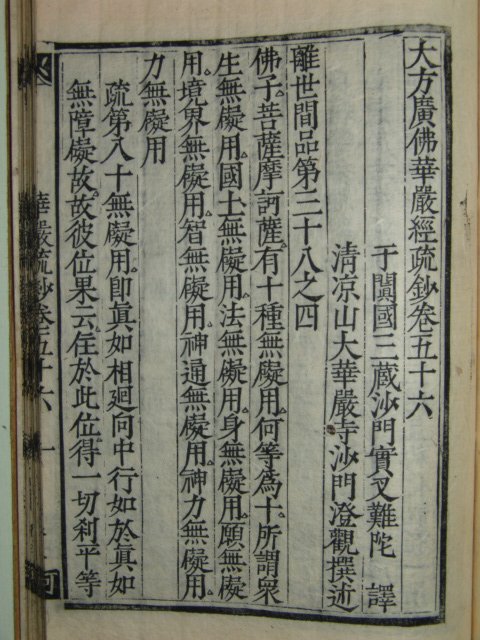 大方廣佛華嚴經疏鈔卷五十六
于闐國三藏沙門實叉難陀 譯
清凉山大華嚴寺沙門澄觀撰述
離世間品第三十八之四
佛子。菩薩摩訶薩。有十種無礙用。何等為十。所謂衆
生無礙用。國土無礙用。法無礙用。身無礙用。願無礙
用。境界無礙用。智無礙用。神通無礙用。神力無礙用。
力無礙用
疏第入十無礙用。即眞如相廻向中行如於眞如
無障礙故。故彼位果云住於此位。得一切刹平等
華嚴疏鈔卷五十六 一